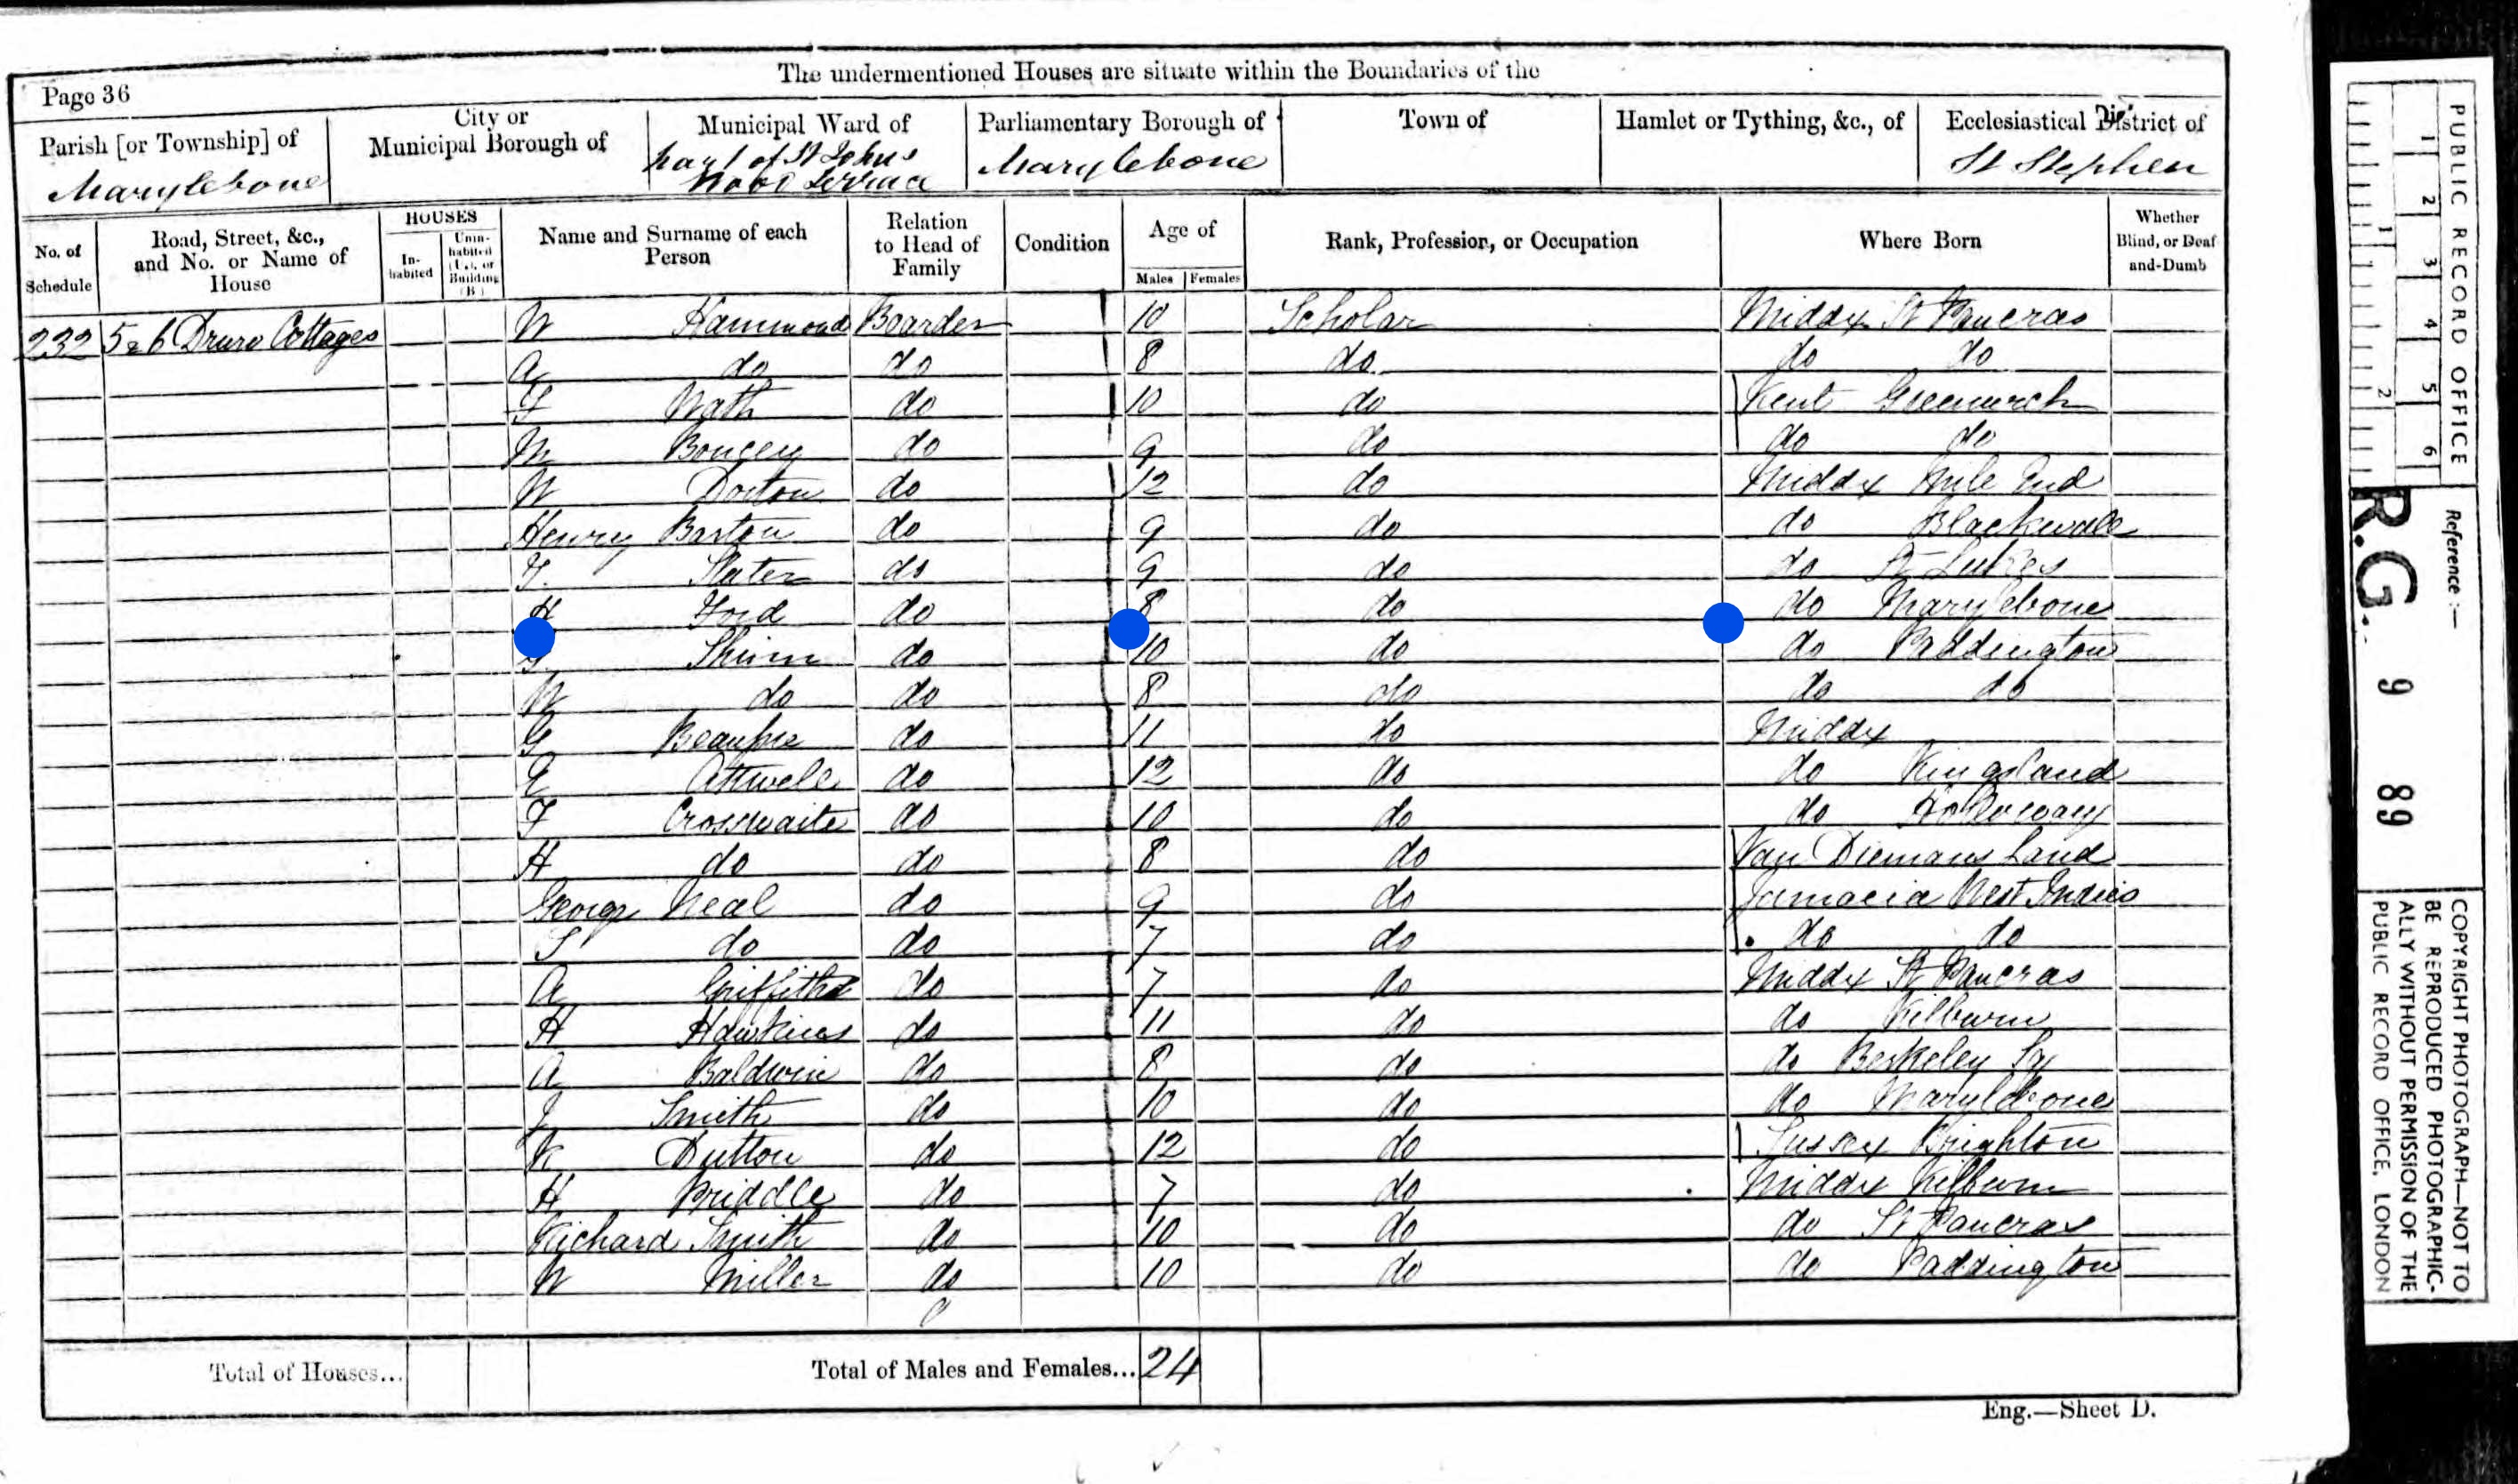 The undermentioned Houses are situate within the Boundaries of the
Page 36
Parish [or Township] of
Marylebone
City or
Municipal Borough of
Municipal Ward of
part of St Johns
Wood Terrace
Parliamentary Borough of
Marylebone
Town of
Hamlet or Tything, &c., of
Ecclesiastical District of
St Stephen
No. of
Schedule
Road, Street, &c.,
and No. or Name of
House
HOUSES
In-
habited
Unin-
habited
(U.), or
Building
(B)
Name and Surname of each
Person
Relation
to Head of
Family
Condition
Age of
Males Females
Rank, Profession, or Occupation
Where Born
Whether
Blind, or Deaf
and-Dumb
232 5 & 6 Cottages W Hammond Boarder 10 Scholar Middx St Pancras
A do do 8 do do do
F Wath do 10 do Kent Greenwich
M do 9 do do do
W Dorton do 12 do Middx Mile End
Henry Barton do 9 do do Blackwall
T. Slater do 9 do do St Lukes
H Ford do 8 do do Marylebone
do 10 do do Paddington
W do do 8 do do do
G do 11 do Middx
E Attwell do 12 do do Kingsland
F Crosswaite do 10 do do Holloway
H do do 8 do Van Diemans Land
George Neal do 9 do Jamacia West Indies
S do do 7 do do do
A Griffiths do 7 do Middx St Pancras
H Hawkins do 11 do do Kilburn
A Baldwin do 8 do do Berkeley Sq
J Smith do 10 do do Marylebone
K Dutton do 12 do Sussex Brighton
H Priddle do 7 do Middx Kilburn
Richard Smith do 10 do do St Pancras
W Miller do 10 do do Paddington
Total of Houses...
Total of Males and Females... 24
Eng.—Sheet D.
PUBLIC RECORD OFFICE
1 2 3 4 5 6
1 2
Reference :—
R.G. 9 89
COPYRIGHT PHOTOGRAPH—NOT TO
BE REPRODUCED PHOTOGRAPHIC-
ALLY WITHOUT PERMISSION OF THE
PUBLIC RECORD OFFICE, LONDON